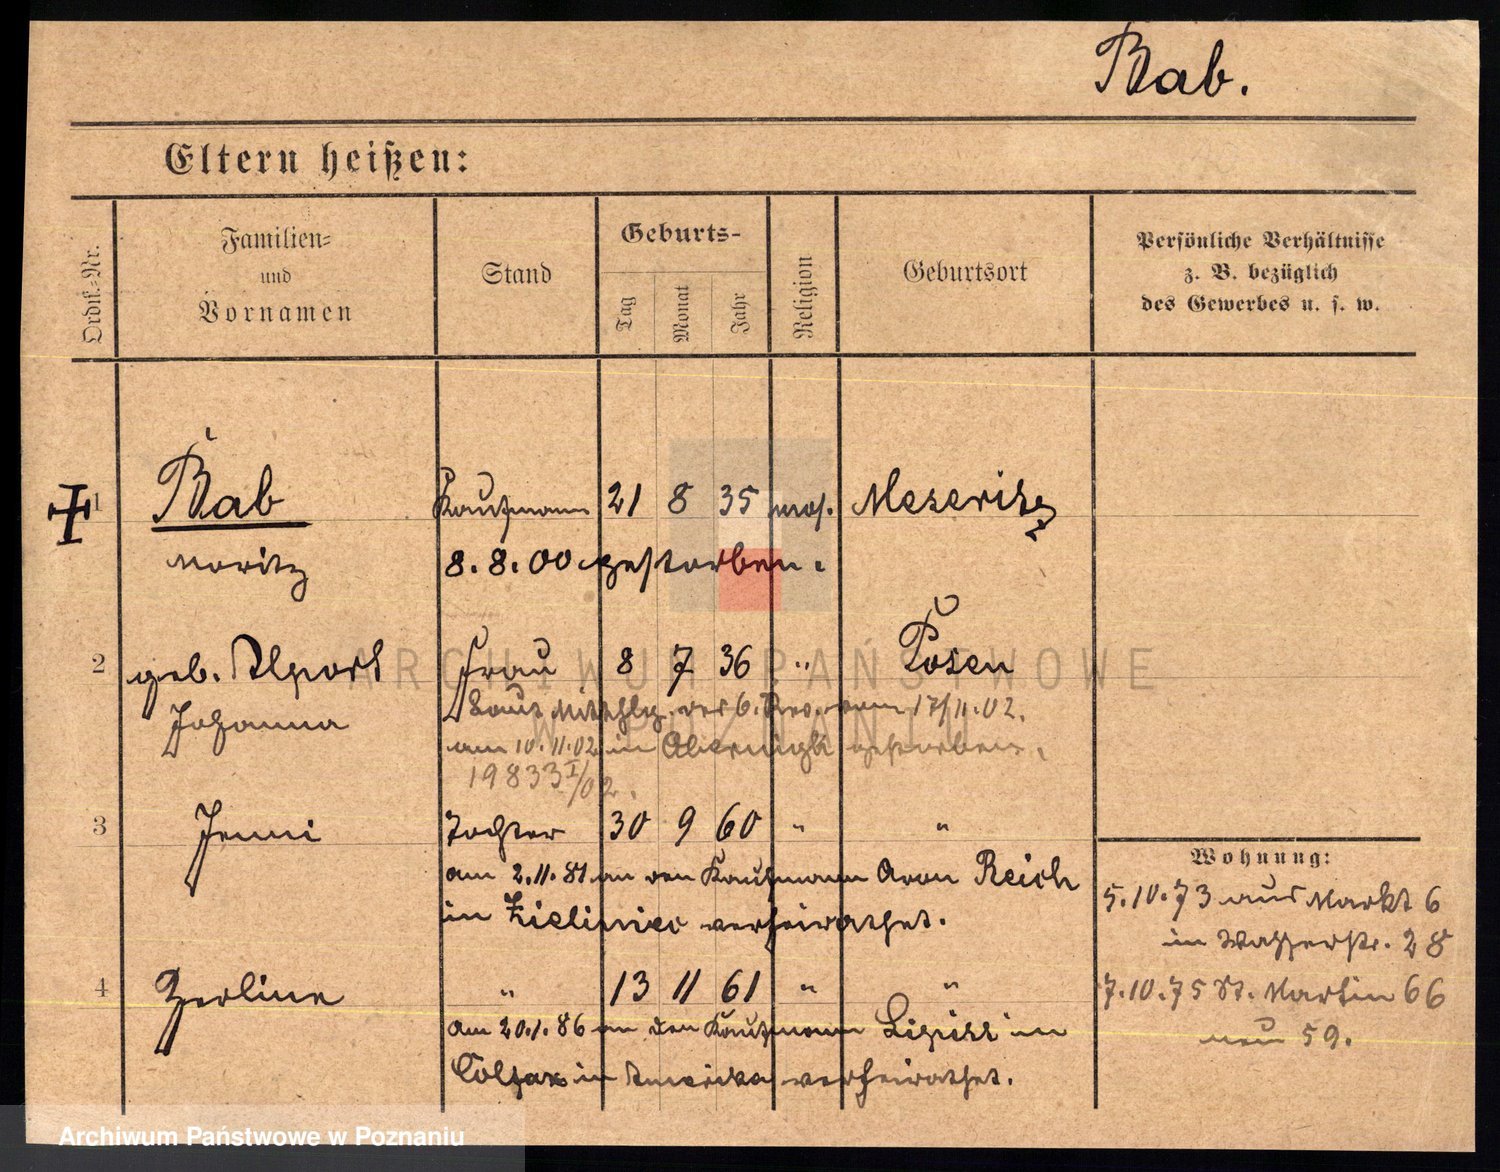 Bab.
Eltern heißen:
Ordn.-Nr.
Familien-
und
Vornamen
Stand
Geburts-
Tag
Monat
Jahr
Religion
Geburtsort
Persönliche Verhältnisse
z. B. bezüglich
des Gewerbes u. s. w.
1 Bab Kaufmann 21 8 35 mos. Meseritz
Moritz 8.8.00 gestorben.
2 geb. Alport Frau 8 7 36 " Posen
Johanna Laut Mitthlg. des 6. Rev. vom 17/11.02.
am 10.11.02 in Obernigk gestorben.
19833 I/02.
3 Jenni Tochter 30 9 60 " "
am 2.11.81 an den Kaufmann Aron Reich
in Zieliniec verheirathet.
4 Zerline " 13 11 61 " "
am 20.1.86 an den Kaufmann in
Colfax in Amerika verheirathet.
Wohnung:
5.10.73 aus Markt 6
in Wasserstr. 28
7.10.75 St. Martin 66
neu 59.
ARCHIWUM PAŃSTWOWE
W POZNANIU
Archiwum Państwowe w Poznaniu